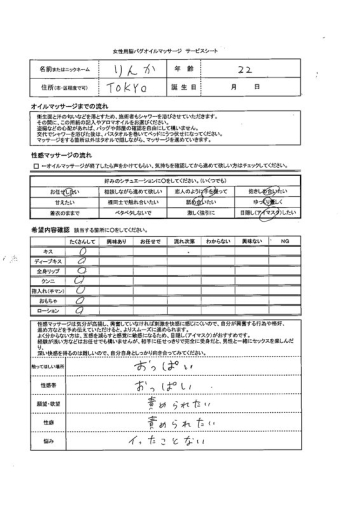 女性用脳バグオイルマッサージ サービスシート
名前またはニックネーム りんか 年 齢 22
住所(市・区程度で可) TOKYO 誕 生 日 月 日
オイルマッサージまでの流れ
衛生面と汗の匂いなどを落とすため、施術者もシャワーを浴びさせていただきます。
その間に、この用紙の記入やアロマオイルをお選びください。
盗撮などの心配があれば、バッグや部屋の確認を自由にして構いません。
交代でシャワーを浴びた後は、バスタオルを巻いてベッドにうつ伏せになってください。
マッサージをする箇所以外はタオルで隠しながら、マッサージを進めていきます。
性感マッサージの流れ
□ ←オイルマッサージが終了したら声をかけてもらい、気持ちを確認してから進めて欲しい方はチェックしてください。
好みのシチュエーションに〇をしてください。(いくつでも)
お任せしたい 相談しながら進めて欲しい 恋人のように手を握って 倍返しし合いたい
甘えたい 標同士で触れ合いたい 舐め合いたい ゆっくり優しく
着衣のままで ベタベタしないで 激しく強引に 目隠し(アイマスク)したい
希望内容確認 該当する箇所に〇をしてください。
たくさんして 興味あり お任せで 流れ次第 わからない 興味ない NG
キス 〇
ディープキス 〇
全身リップ 〇
クンニ 〇
指入れ(手マン) 〇
おもちゃ 〇
ローション 〇
性感マッサージは気分が高揚し、興奮していなければ刺激を快感に感じにくいので、自分が興奮する行為や格好、
責め方などを予め伝えていただけると、よりスムーズに進められます。
よく分からない方は、五感を減らすと感度が高くなるため、目隠し(アイマスク)がおすすめです。
経験が浅い方などはお任せでも構いませんが、相手に任せっきりで完全に受身だと、男性と一緒にセックスを楽しんだり、
深い快感を得るのは難しいので、自分自身としっかり向き合ってみてください。
触ってほしい場所 おっぱい
性感帯 おっぱい
願望・欲望 責められたい
性癖 責められたい
悩み イったことない